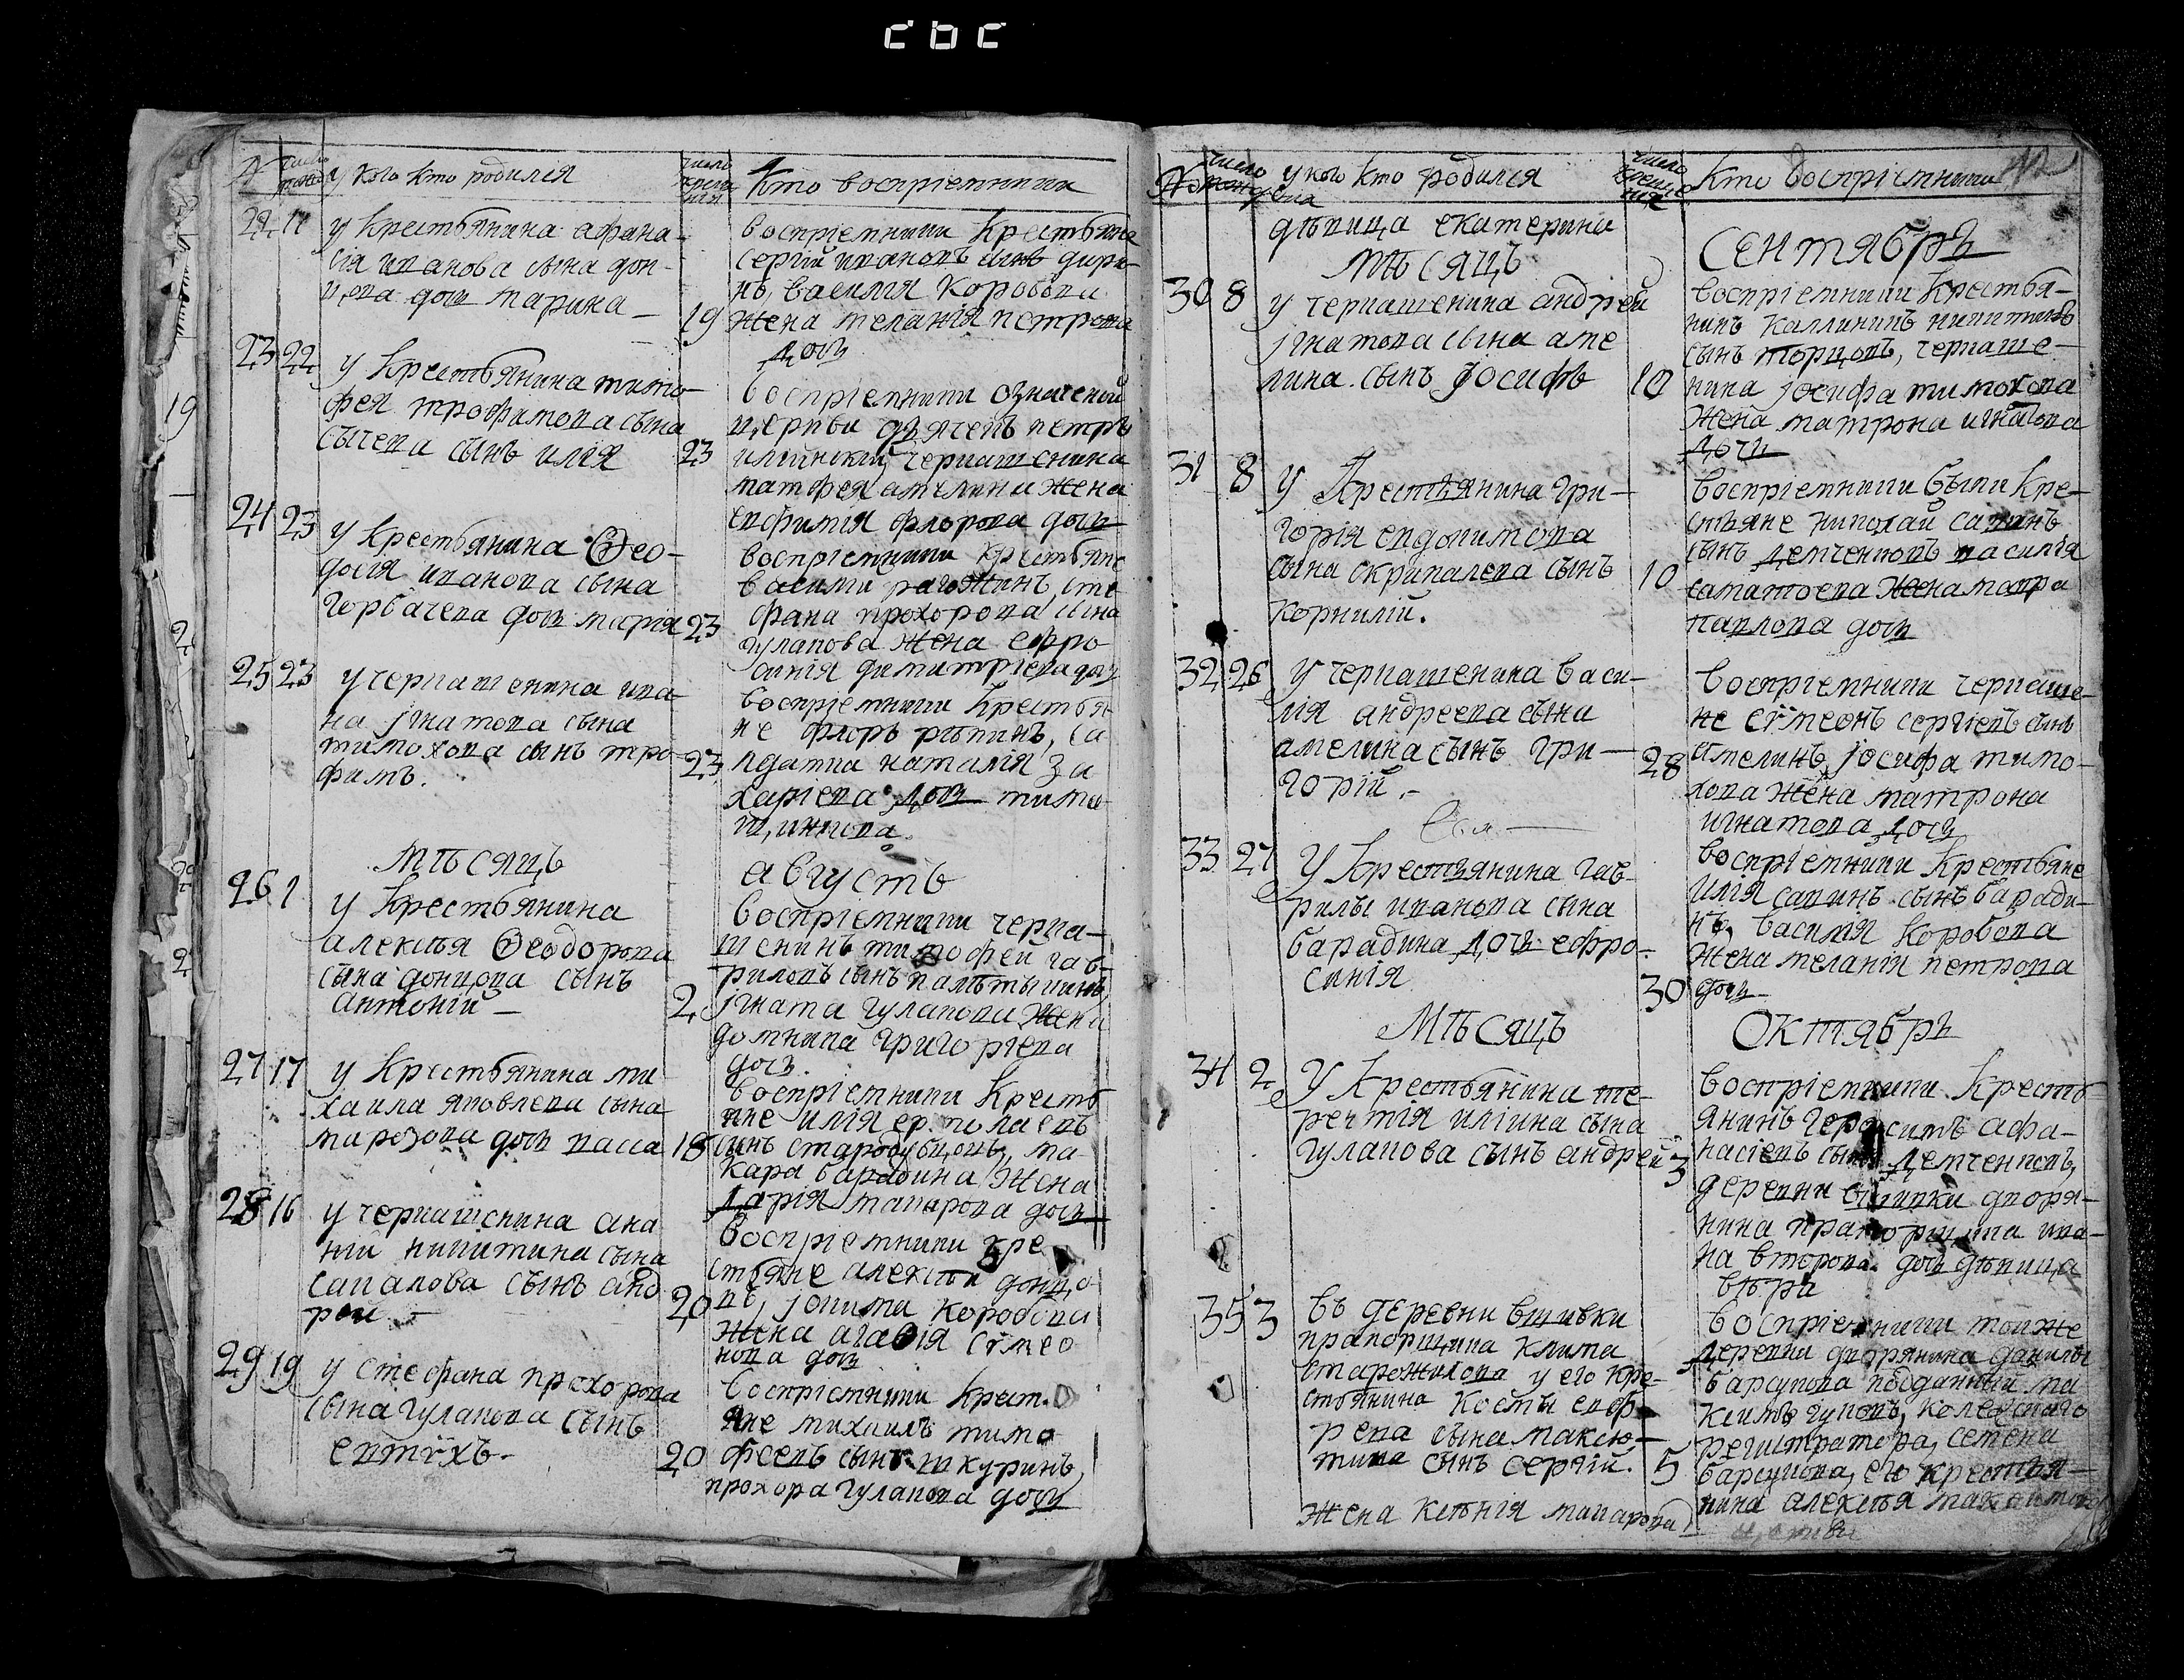 №
число рожд
у кого кто родился
число креще ния
Кто воспрiемники
22 11
у Крестьянина афана-
сiя иванова сына дон-
цова дочь марина
19
воспрiемники Крестьяне
сергiй ивановъ сынъ
нъ, василiя Коробова
жена меланiя петрова
дочь
23 22
у Крестьянина тимо-
фея трофимова сына
сычева сынъ илiя
23
воспрiемники означеной
церкви дьячекъ петръ
илiинский, черкашенина
матфея амелина жена
евфимiя флорова дочь
24 23
у Крестьянина Ѳео-
досiя иванова сына
Горбачева дочь марiя
23
воспрiемники крестьяне
василий рагожинъ, сте
фана прохорова сына
гулакова жена ефро
синiя димитрiева дочь
25 23
у черкашенина ива-
на iгнатова сына
тимохова сынъ тро-
фимъ.
23
воспрiемники Крестья
не флоръ рѣпинъ, са
лдатка наталiя за
харiева дочь тимо
щинкова.
МѢСЯЦЪ
августъ
26 1
у Крестьянина
алексѣя Ѳеодорова
сына донцова сынъ
антонiй —
2
воспрiемники черка-
шенинъ тимофей гав-
риловъ сынъ
iгната гулакова жена
домникiа григорiева
дочь.
27 17
у Крестьянина ми-
хаила яковлева сына
марозова дочь васса
18
воспрiемники Кресть
яне илiя ермолаевъ
сынъ стародубцовъ, ма-
Кара барадина жена
дарiя макарова дочь
28 16
у черкашенина ана
нiи никитина сына
сапалова сынъ анд
рей. —
20
воспрiемники кре
стьяне алексѣй донцо
въ, iоакима Коробова
жена агафiя сѵмео
нова дочь
29 19
у стефана прохорова
сына гулакова сынъ
евтѵхъ.
20
воспрiемники крест.
яне михаилъ тимо
феевъ сынъ шкуринъ,
прохора гулакова дочь
№
число рожде нiя
у кого кто родился
число креще нiя
Кто воспрiемники
дѣвица екатерина
МѢСЯЦЪ
СЕНТЯБРЬ
30 8
у черкашенина андрей
iгнатова сына аме
лина. сынъ Iосифъ
10
воспрiемники Крестья-
нинъ Каллиникъ никитинъ
сынъ торцовъ, черкаше-
нина iосифа тимохова
жена матрона игнатова
дочь
31 8
У Крестьянина гри-
горiя евдокимова
сына скрипалева сынъ
корнилiй.
10
воспрiемники были Кре-
стьяне николай савинъ
сынъ демченковъ василiя
жена
павлова дочь
32 26
У черкашенина васи-
лiя андреева сына
амелина сынъ гри-
горiй.
28
воспрiемники черкаше-
не сѵмеонъ сергiевъ сынъ
амелинъ, iосифа тимо-
хова жена матрона
игнатова дочь
33 27
У Крестьянина гав-
рилы иванова сына
барадина дочь ефро-
синiя
30
воспрiемники Крестьяне
илiя савинъ сынъ баради-
нъ, василiя Коробова
жена меланiя петрова
дочь
МѢСЯЦЪ
ОКТЯБРЬ
34 2
У Крестьянина те-
рентiя илiина сына
гулакова сынъ андрей
3
воспрiемники Кресть
янинъ герасимъ афа-
насiевъ сынъ демченковъ,
деревни вшивки дворя-
нина прапорщика ива-
на второва дочь дѣвица
вѣра
35 3
въ деревни вшивки
прапорщика Клима
старожилова у его кре-
стьянина Косты евф-
рева сына максю-
тина сынъ сергiй.
5
воспрiемники тойже
деревни дворянина данилы
барсукова подданный ма
ксимъ гуковъ, колежскаго
регистратора, семена
барсукова, его крестья-
нина алексѣя максимова
жена ксѣнiя макарова